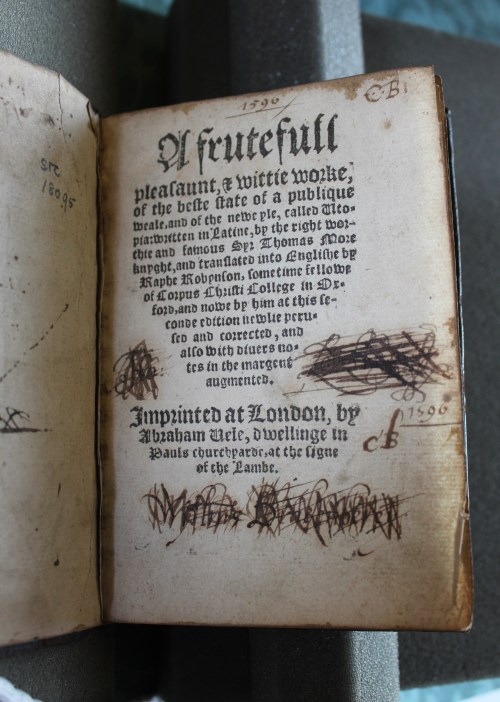 1590
C·B
A frutefull
pleasaunt, & wittie worke,
of the beste state of a publique
weale, and of the newe yle, called Uto-
pia: written in Latine, by the right wor-
thie and famous Syr Thomas More
knyght, and translated into Englishe by
Raphe Robynson, sometime fellowe
of Corpus Christi College in Ox-
ford, and nowe by him at this se-
conde edition newlie peru-
sed and corrected, and
also with diuers no-
tes in the margent
augmented.
Imprinted at London, by
Abraham Uele, dwellinge in
Pauls churchyarde, at the signe
of the Lambe.
1590
CB